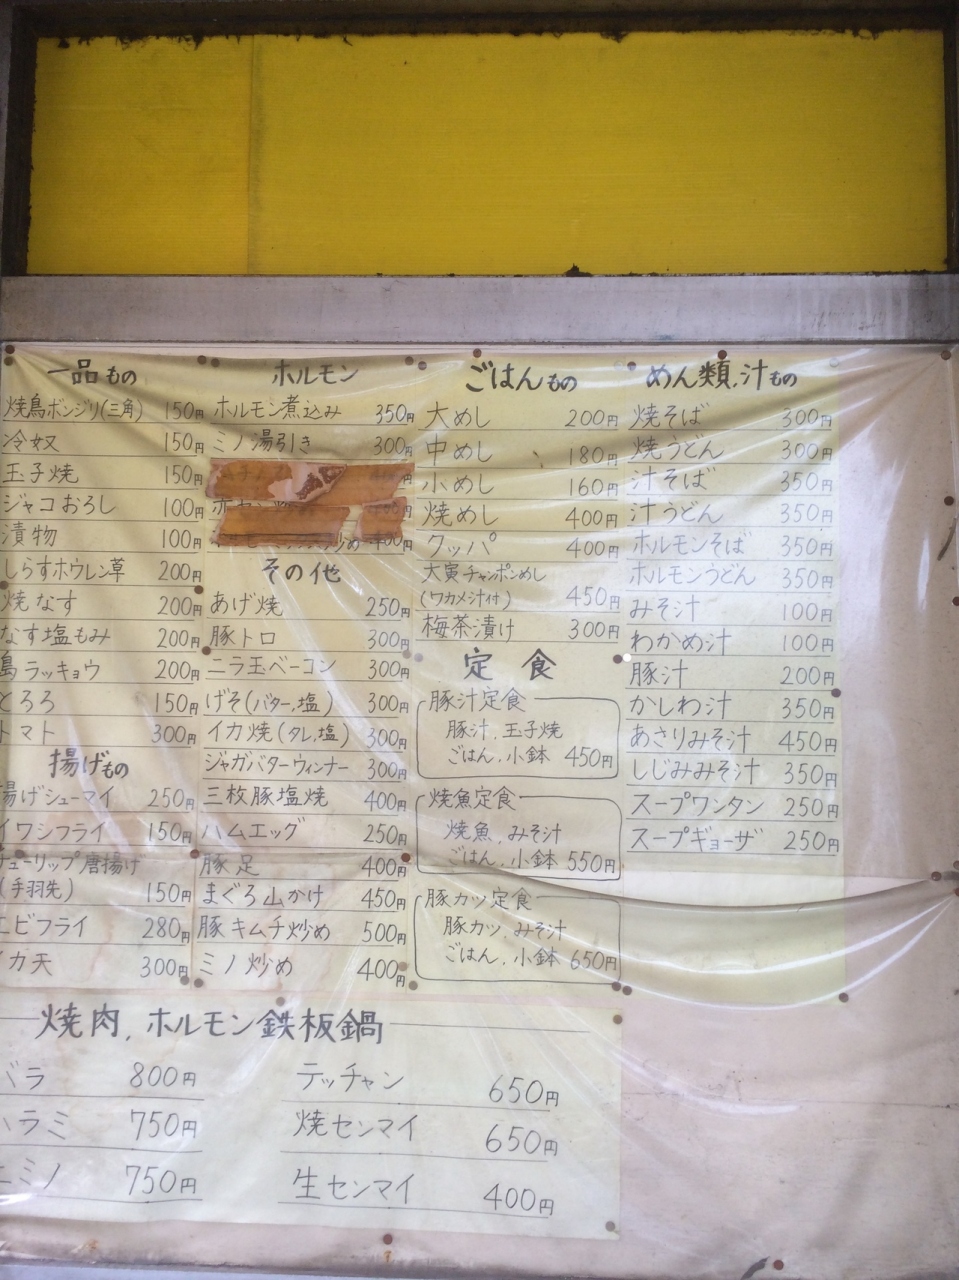 一品もの
焼鳥ボンジリ(三角) 150円
冷奴 150円
玉子焼 150円
ジャコおろし 100円
漬物 100円
しらすホウレン草 200円
焼なす 200円
なす塩もみ 200円
島ラッキョウ 200円
とろろ 150円
トマト 300円
揚げもの
揚げシューマイ 250円
イワシフライ 150円
チューリップ唐揚げ
(手羽先) 150円
エビフライ 280円
イカ天 300円
ホルモン
ホルモン煮込み 350円
ミノ湯引き 300円
その他
あげ焼 250円
豚トロ 300円
ニラ玉ベーコン 300円
げそ(バター,塩) 300円
イカ焼(タレ,塩) 300円
ジャガバターウィンナー 300円
三枚豚塩焼 400円
ハムエッグ 250円
豚足 400円
まぐろ山かけ 450円
豚キムチ炒め 500円
ミノ炒め 400円
ごはんもの
大めし 200円
中めし 180円
小めし 160円
焼めし 400円
クッパ 400円
大寅チャンポンめし
(ワカメ汁付) 450円
梅茶漬け 300円
定食
豚汁定食
豚汁、玉子焼
ごはん、小鉢 450円
焼魚定食
焼魚、みそ汁
ごはん、小鉢 550円
豚カツ定食
豚カツ みそ汁
ごはん、小鉢 650円
めん類、汁もの
焼そば 300円
焼うどん 300円
汁そば 350円
汁うどん 350円
ホルモンそば 350円
ホルモンうどん 350円
みそ汁 100円
わかめ汁 100円
豚汁 200円
かしわ汁 350円
あさりみそ汁 450円
しじみみそ汁 350円
スープワンタン 250円
スープギョーザ 250円
焼肉、ホルモン鉄板鍋
バラ 800円
ハラミ 750円
ミノ 750円
テッチャン 650円
焼センマイ 650円
生センマイ 400円